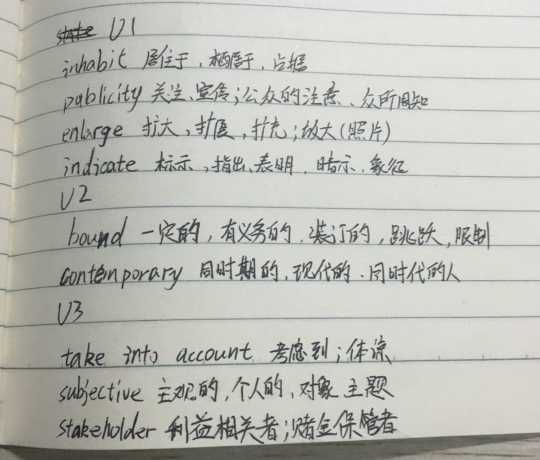 U1
inhabit 居住于，栖居于，占据
publicity 关注、宣传；公众的注意、众所周知
enlarge 扩大，扩展，扩充；放大(照片)
indicate 标示，指出、表明．暗示．象征
U2
bound 一定的，有义务的．装订的，跳跃，限制
contemporary 同时期的．现代的．同时代的人
U3
take into account 考虑到；体谅
subjective 主观的，个人的，对象 主题
stakeholder 利益相关者；赌金保管者